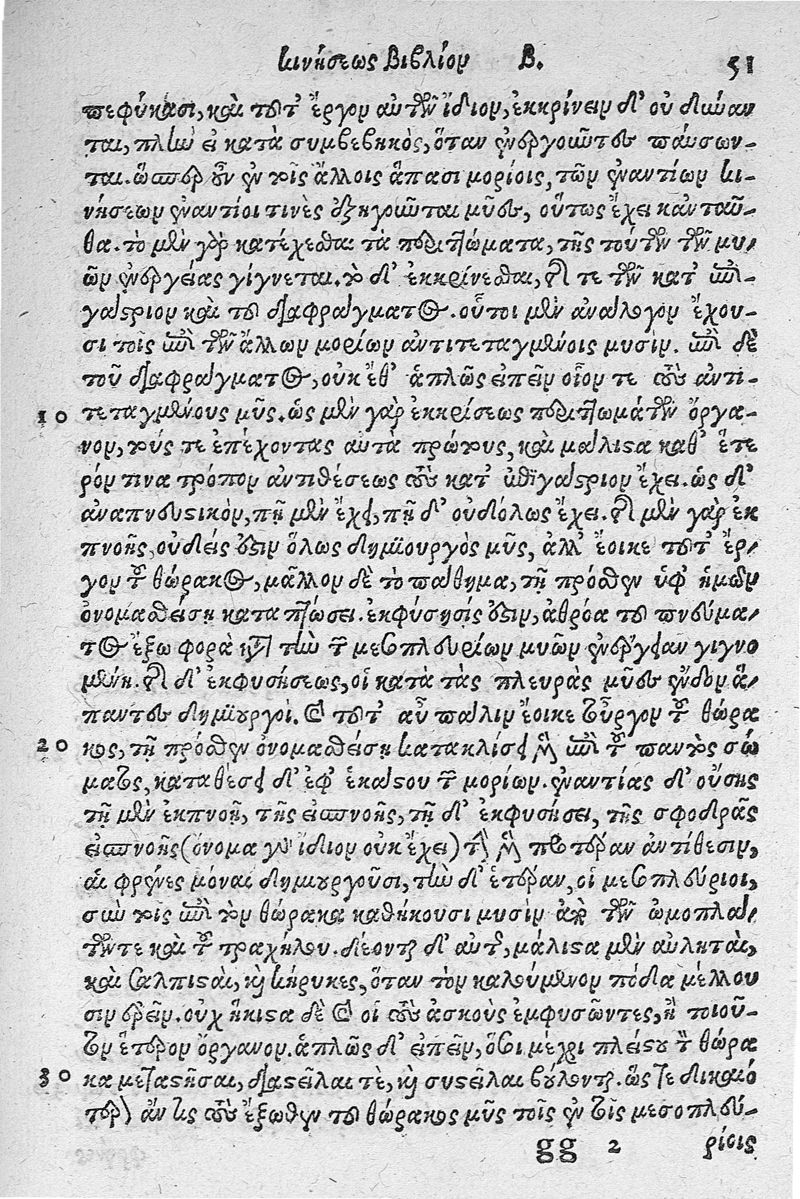 κινήσεως Βιβλίον Β. 51
πεφύκασι, καὶ τοῦτ' ἔργον αὐτῶν ἴδιον, ἐκκρίνειν δ' οὐ δύναν-
ται, πλὴν εἰ κατὰ συμβεβηκὸς, ὅταν ἐνεργοῦντες παύσων-
ται. ὥσπερ οὖν ἐν τοῖς ἄλλοις ἅπασι μορίοις, τῶν ἐναντίων κι-
νήσεων ἐναντίοι τινὲς ἐξηγοῦνται μῦες, οὕτως ἔχει κἀνταῦ-
θα. τὸ μὲν γὰρ κατέχεσθαι τὰ περιττώματα, τῆς τούτων τῶν μυ-
ῶν ἐνεργείας γίγνεται. τὸ δ' ἐκκρίνεσθαι, διά τε τῶν κατ' ἐπι-
γάστριον καὶ τοῦ διαφράγματος. οὗτοι μὲν ἀνάλογον ἔχου-
σι τοῖς ἐπὶ τῶν ἄλλων μορίων ἀντιτεταγμένοις μυσὶν. ἐπὶ δὲ
τοῦ διαφράγματος, οὐκ ἔθ' ἁπλῶς εἰπεῖν οἷον τε τοὺς ἀντι-
10 τεταγμένους μῦς. ὡς μὲν γὰρ ἐκκρίσεως περιττωμάτων ὄργα-
νον, τούς τε ἐπέχοντας αὐτὰ πρώτους, καὶ μάλιστα καθ' ἕτε
ρόν τινα τρόπον ἀντιθέσεως τοὺς κατ' ὑπιγάστριον ἔχει. ὡς δ'
ἀναπνευστικὸν, πῇ μὲν ἔχει, πῇ δ' οὐδόλως ἔχει. διὰ μὲν γὰρ ἐκ
πνοῆς, οὐδείς ἐστιν ὅλως δημιουργὸς μῦς, ἀλλ' ἔοικε τοῦτ' ἔρ-
γον τοῦ θώρακος, μᾶλλον δὲ τὸ πάθημα, τῇ πρόσθεν ὑφ' ἡμῶν
ὀνομασθείσῃ καταπτώσει. ἐκφύσησίς ἐστιν, ἀθρόα τοῦ πνεύμα-
τος ἔξω φορὰ κατὰ τὴν τῶν μεσοπλευρίων μυῶν ἐνέργειαν γιγνο
μένη. διὰ δ' ἐκφυσήσεως, οἱ κατὰ τὰς πλευρὰς μῦες ἔνδον ἅ-
παντες δημιουργοί. καὶ τοῦτ' αὖ πάλιν ἔοικε τοὖργον τοῦ θώρα
20 κος, τῇ πρόσθεν ὀνομασθείσῃ κατακλίσει μὲν ἐπὶ τοῦ παντὸς σώ
ματος, καταθέσει δ' ἐφ' ἑκάστου τῶν μορίων. ἐναντίας δ' οὔσης
τῇ μὲν ἐκπνοῇ, τῆς εἰσπνοῆς, τῇ δ' ἐκφυσήσει, τῆς σφοδρᾶς
εἰσπνοῆς (ὄνομα γὰρ ἴδιον οὐκ ἔχει) τὴν μὲν προτέραν ἀντίθεσιν,
αἱ φρένες μόναι δημιουργοῦσι, τὴν δ' ἑτέραν, οἱ μεσοπλεύριοι,
σὺν τοῖς ἐπὶ τὸν θώρακα καθήκουσι μυσὶν ἀπὸ τῶν ὠμοπλα-
τῶν τε καὶ τοῦ τραχήλου. δέονται δ' αὐτοῦ, μάλιστα μὲν αὐληταὶ,
καὶ σαλπισταὶ, καὶ κήρυκες, ὅταν τὸν καλούμενον πόδια μέλλου
σιν ἐρεῖν. οὐχ ἥκιστα δὲ καὶ οἱ τοὺς ἀσκοὺς ἐμφυσῶντες, ἢ ποιοῦ-
τον ἕτερον ὄργανον. ἁπλῶς δ' εἰπεῖν, ὅσοι μέχρι πλείστου τὸν θώρα
30 κα μεταστῆσαι, διαστεῖλαι τὲ, καὶ συστεῖλαι βούλονται. ὥστε δικαιό
τερον ἄν τις τοὺς ἔξωθεν τοῦ θώρακος μῦς τοῖς ἐν τοῖς μεσοπλευ-
gg 2 ρίοις